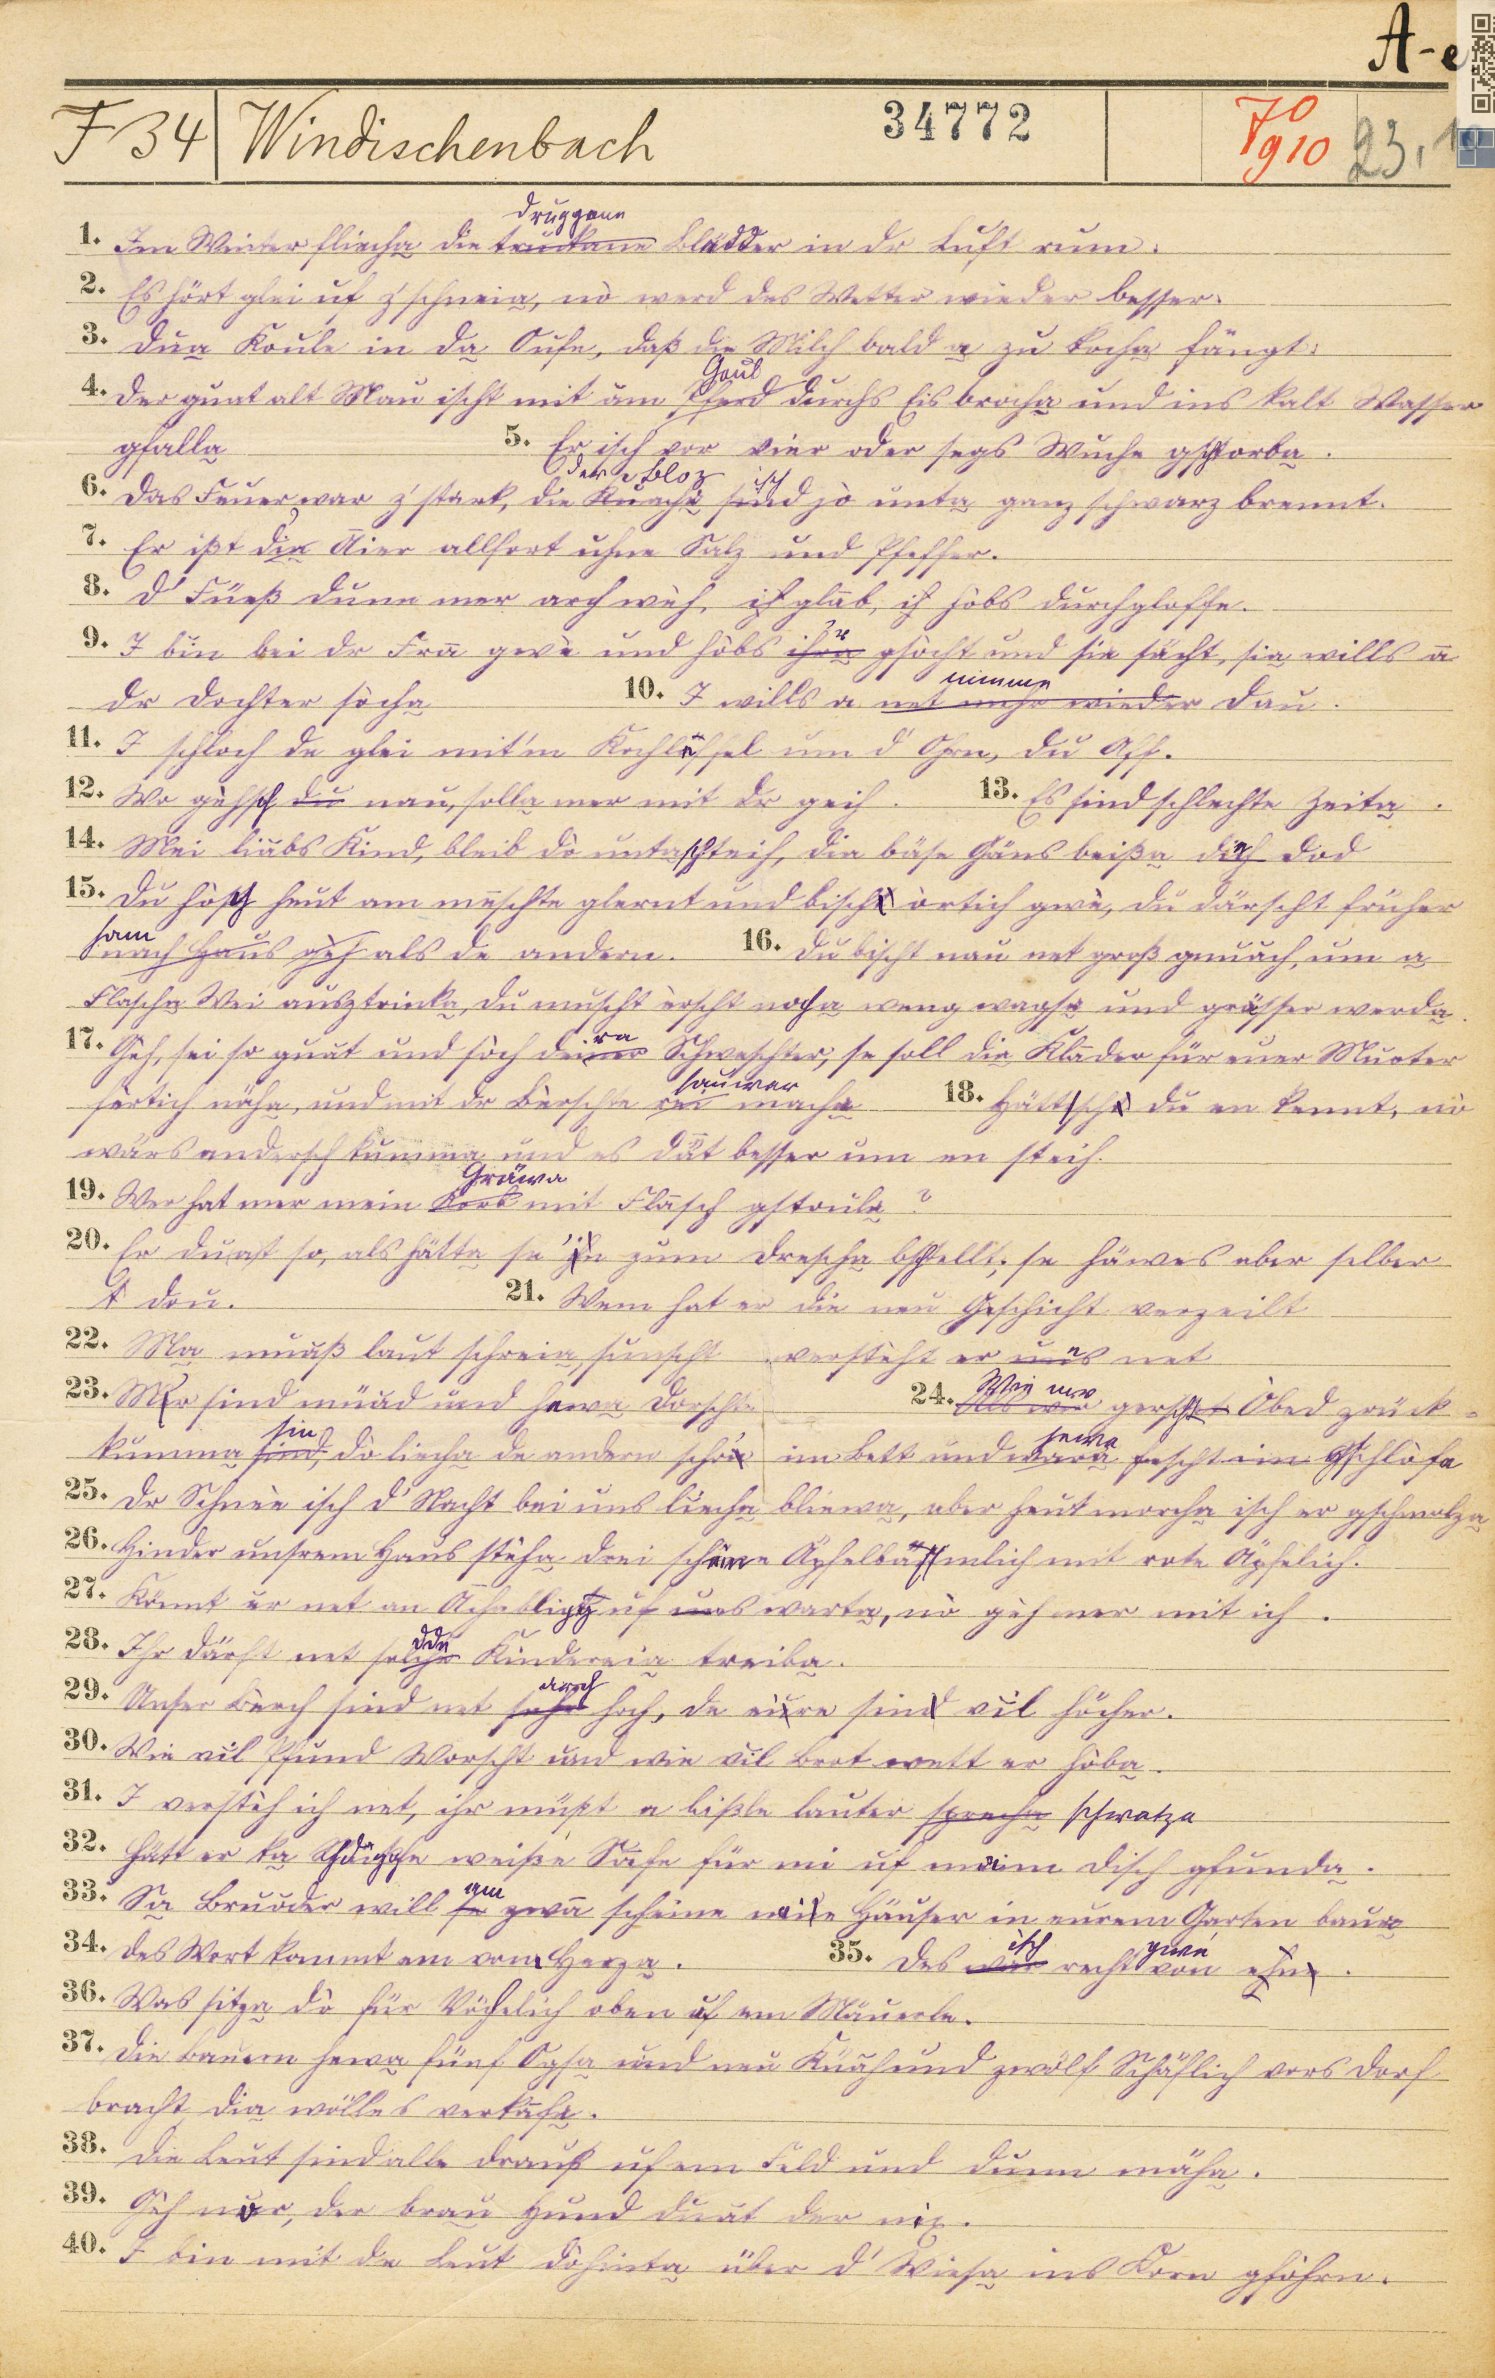 A-e
F 34 Windischenbach 34772 70 g10 23,10
druggene
1. Im Winter fliecha die truckane Blädder in dr Luft rum.
2. Es hört glei uf z'schneia, nò werd des Wetter wieder besser.
3. Dua Koule in da Oufe, daß die Milch bald a zu kocha fängt.
Gaul
4. Der guat alt Mau ischt mit äm Pferd durchs Eis brocha und ins kalt Wasser
gfalla 5. Er isch vor vier oder segs Wuche gschtorba.
der Bloz isch
6. Das Feuer war z'stark, die Kuacha sind jò unta ganz schwarz brennt.
7. Er ißt die Aier allfort uhne Salz und Pfeffer.
8. D' Füeß dunn mer arch wèh, ich glab, ich hòbs durchgloffe.
9. I bin bei dr Fra gwè und hòbs ihra gsòcht und sie sächt, sia wills a
nimme
dr Dochter sòcha 10. I wills a net mehr wieder dau.
11. I schloch de glei mit'm Kochlöffel um d' Ohrn, du Aff.
12. Wo gèhsch du nau, solla mer mit dr geih. 13. Es sind schlechte Zeita.
14. Mei liabs Kind, bleib dò unta schteih, die bäse Gäns beißa dich dod
15. Du hòsch heut am meschte glernt und bisch örtich gwè, du därscht früher
ham
nach Haus gèh als de andern. 16. Du bischt nau net groß gnuach, um a
Flascha Wei ausztrinka, du muscht èrscht noch a weng wagse und grässer werda.
ra
17. Gèh, sei so guat und sòch deiner Schweschter, se soll die Klader für euer Muoter
sauwer
färtich näha, und mit dr Bèrschte rei macha 18. Hättsch du en kennt, nò
wärs andersch kumma und es dät besser um en steih.
Gräwa
19. Wer hat mer mein Korb mit Flasch gstoula?
20. Er duat so, als hätta se 'n zum drescha bschtellt; se häwes aber selber
dou. 21. Wem hat er die neu Geschicht verzeilt
22. Ma muaß laut schreia, sunscht versteht er uns net
Wie mer
23. Mir sind müad und hewa Dorscht. 24. Als wir gerscht Òbed zrück-
sin hewe
kumma sind, dò liecha de andern schon im Bett und wara fescht im Gschlòfa
25. Dr Schnèe isch d' Nacht bei uns liecha bliewa, aber heut morcha isch er gschmolza
26. Hinder unsrem Haus stèha drei schöne Äpfelbäumlich mit rote Äpfelich.
27. Könnt er net an Achabligg uf uns warta, nò gèh mer mit ich.
ddi
28. Ihr därft net solche Kindereia treiba.
arch
29. Unser Bèrch sind net sehr hoch, de eure sind vil höcher.
30. Wie vil Pfund Worscht und wie vil Brot wett er hòba.
31. I verstèh ich net, ihr müßt a bißle lauter sprecha schwatza
32. Hätt er ka weiße Safe für mi uf meim Disch gfunda.
33. Sa Bruoder will se zwa scheine neie Häuser in eurem Garten baue
isch gwè
34. Des Wort kommt em vom Herza. 35. Des war recht von ehne.
36. Was sitza dò für Vöchelich oben uf em Mäuerle.
37. Die Bauern hewa fünf Ogsa und neu Küah und zwölf Schäflich vors Dorf
bracht dia wölles verkafa.
38. Die Leut sind alle drauß uf em Feld und dunn mäha.
39. Gèh nur, der brau Hund duat der nix.
40. I bin mit de Leut dòhinta über d' Wiesa ins Korn gfohrn.